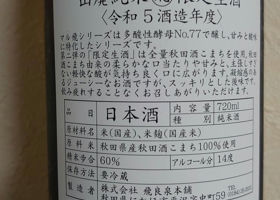 〈令和5酒造年度〉
マル飛シリーズは多酸性酵母No.77で醸し、甘みと軽快
に特化したシリーズです。
第二弾の「限定生酒」は全量秋田酒こまちを使用。秋田
酒こまち由来の柔らかな口当たりや甘みと、主張しすぎ
ない軽快な酸が気持ち良く口中に広がります。凝縮感の
あるジューシーなお酒ですが、スッキリとした後味で
飲み疲れすることなくお楽しみいただけます。
日本酒
内容量 720ml
種別 純米酒
原材料名 米(国産)、米麹(国産)
原料米 秋田県産秋田酒こまち100%使用
精米歩合 60% アルコール分 14度
保存方法 要冷蔵
製造者 株式会社 飛良泉本舗